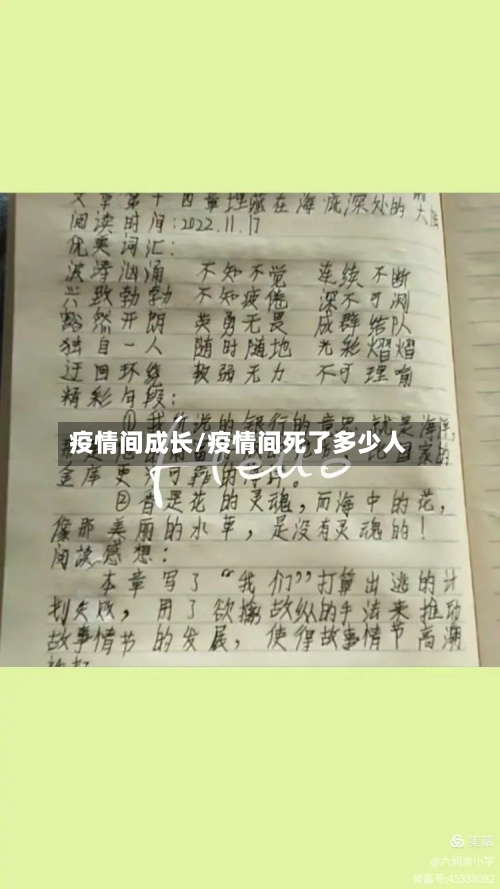 文章第十四章埋藏在海底深处的
大陆
阅读时间:2022.11.17
优美词汇:
波涛汹涌 不知不觉 连续不断
兴致勃勃 不知疲倦 深不可测
豁然开朗 英勇无畏 成群结队
独自一人 随时随地 光彩熠熠
迂回环绕 软弱无力 不可理喻
精彩片段:
①我们说的银行的意思 就是海洋,
疫情间成长/疫情间死了多少人
金库更 可靠的
②香是花的灵魂,而海中的花,
像那美丽的水草,是没有灵魂的!
阅读感想:
本章写了“我们”打算出逃的计
划失败,用了欲擒故纵的手法来推动
故事情节的发展,使得故事情节高潮
美篇
@六间房小学
美篇号:45338082